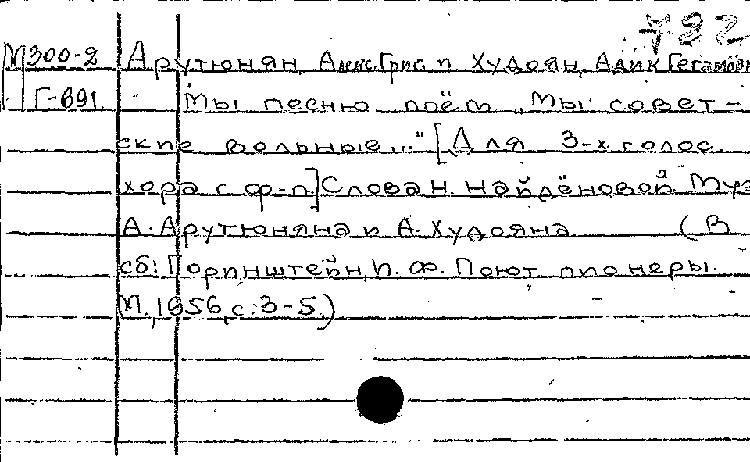 792
М300-2 Арутюнян, Алекс.Григ. и Худоян, Адам Гегамови
Г-691 Мы песню поём „Мы совет-
ские вольные..." [Для 3-х голос.
хора с ф-п] Слова Н. Найдёновой. Муз
А. Арутюняна и А. Худояна (В
сб: Горинштейн, И. Ф. Поют пионеры.
М., 1956, с. 3-5.)